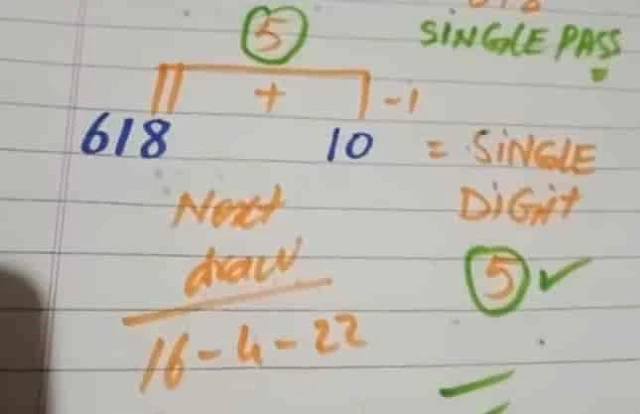 5
SINGLE PASS
+ -1
618 10 = SINGLE
DIGIT
Next
draw
5 ✓
16-4-22